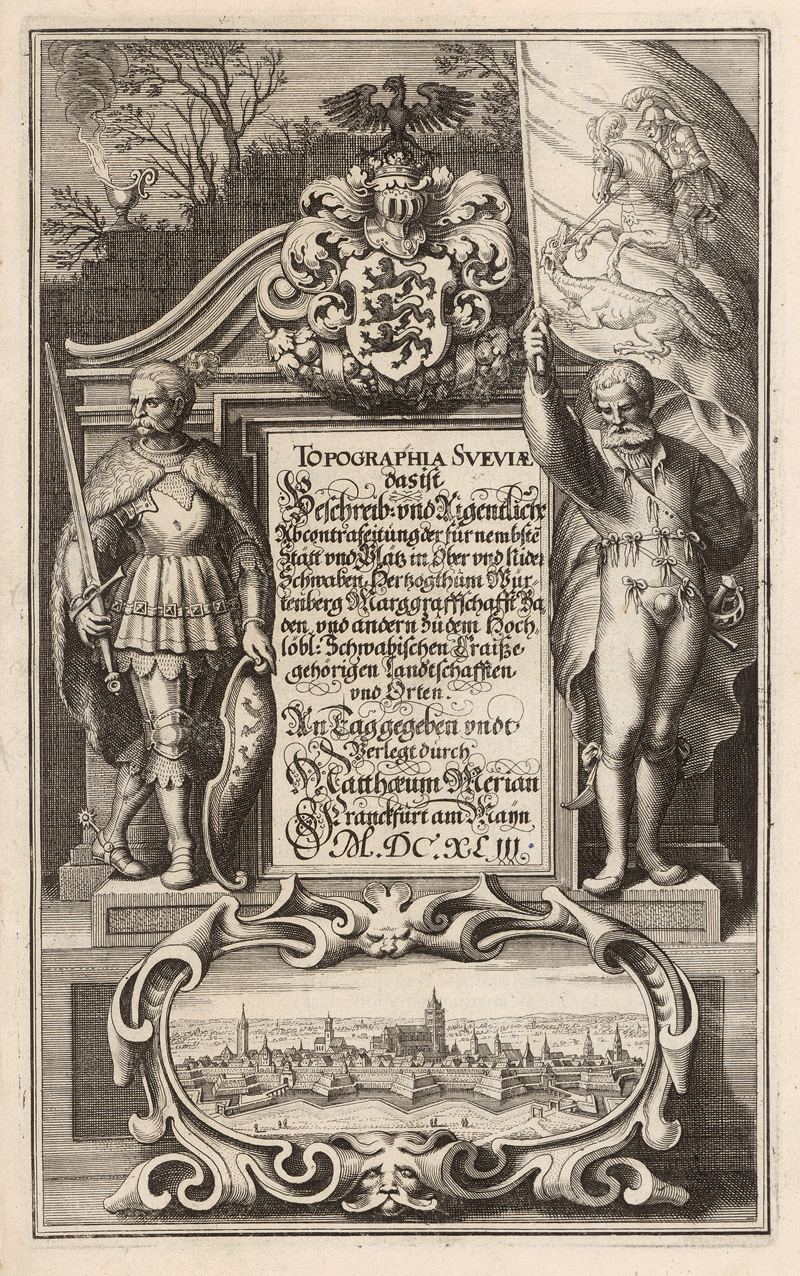 TOPOGRAPHIA SVEVIÆ
das ist
Beschreib: vnd Aigentliche
Abcontrafeitung der fürnembstē
Stätt vnd Plätz in Ober vnd Nider
Schwaben, Hertzogthum Wür-
tenberg Marggraffschafft Ba
den, vnd andern zu dem Hoch,
löbl: Schwabischen Craiße
gehörigen Landtschafften
vnd Orten.
An Tag gegeben vndt
Verlegt durch
Matthæum Merian
Franckfurt am Mayn
M. DC. XLIII.